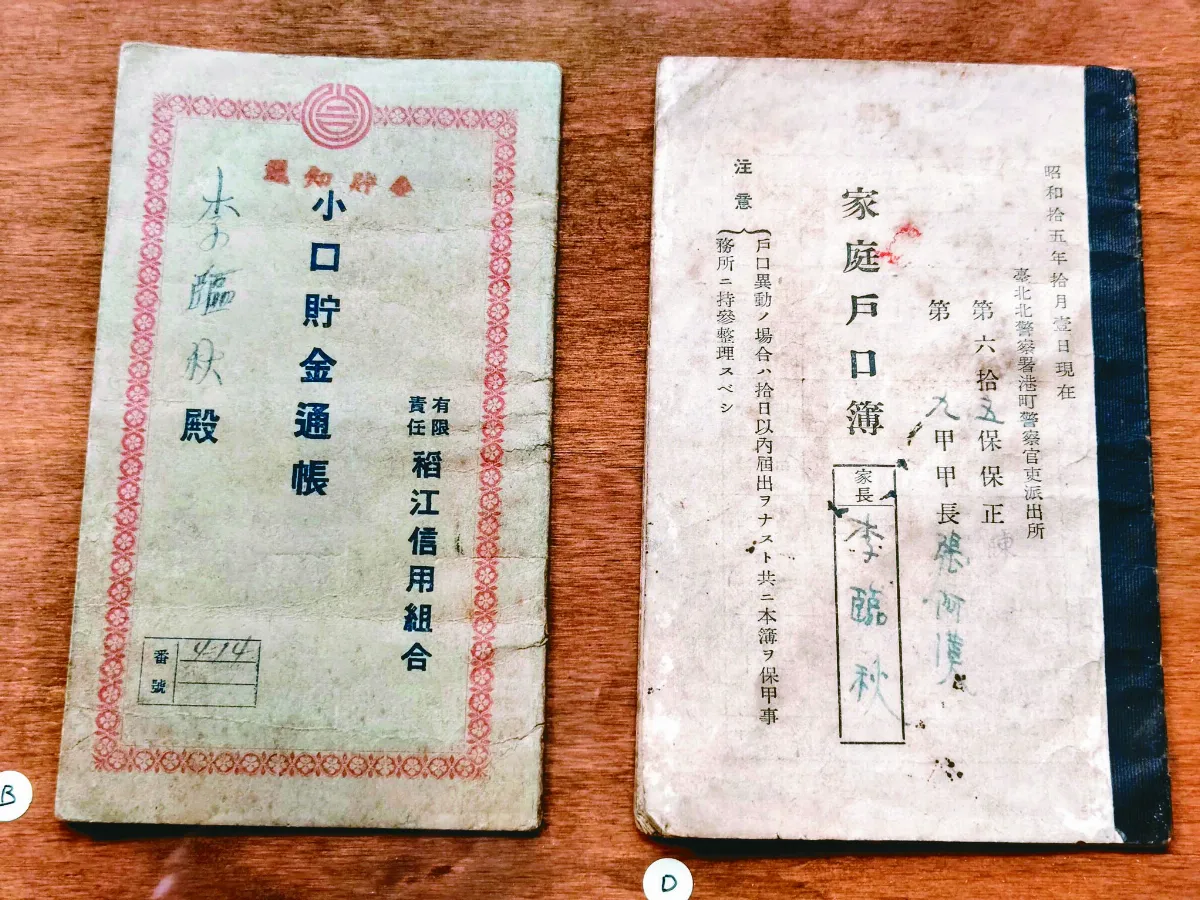 通知貯金
有限責任 稻江信用組合
小口貯金通帳
李臨秋殿
番號 414
B
昭和拾五年拾月壹日現在
臺北北警察署港町警察官吏派出所
第六拾五保保正
第九甲甲長張阿
家庭戶口簿
家長 李臨秋
注意
戶口異動ノ場合ハ拾日以內屆出ヲナスト共ニ本簿ヲ保甲事
務所ニ持參整理スベシ
D